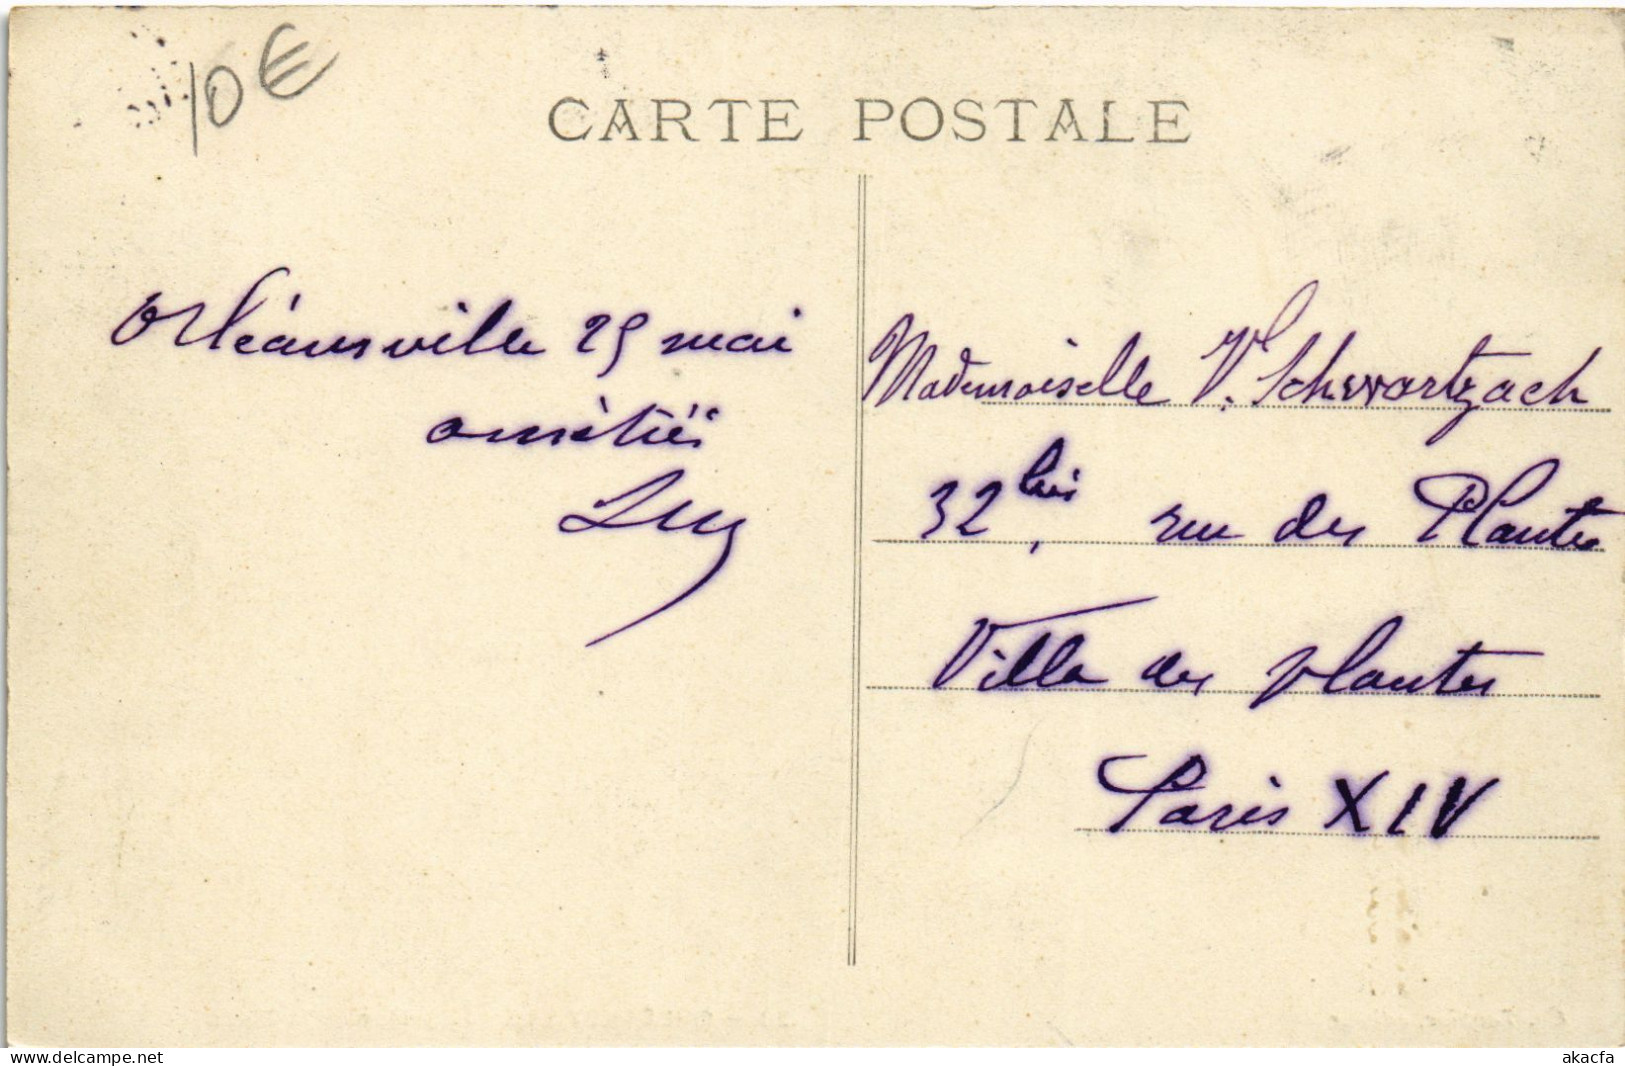 10 €
CARTE POSTALE
Orléansville 25 mai
amitiés
Luz
Mademoiselle V. Schwartzach
32 bis, rue des Plantes
Villa des plantes
Paris XIV
delcampe.net
akacfa